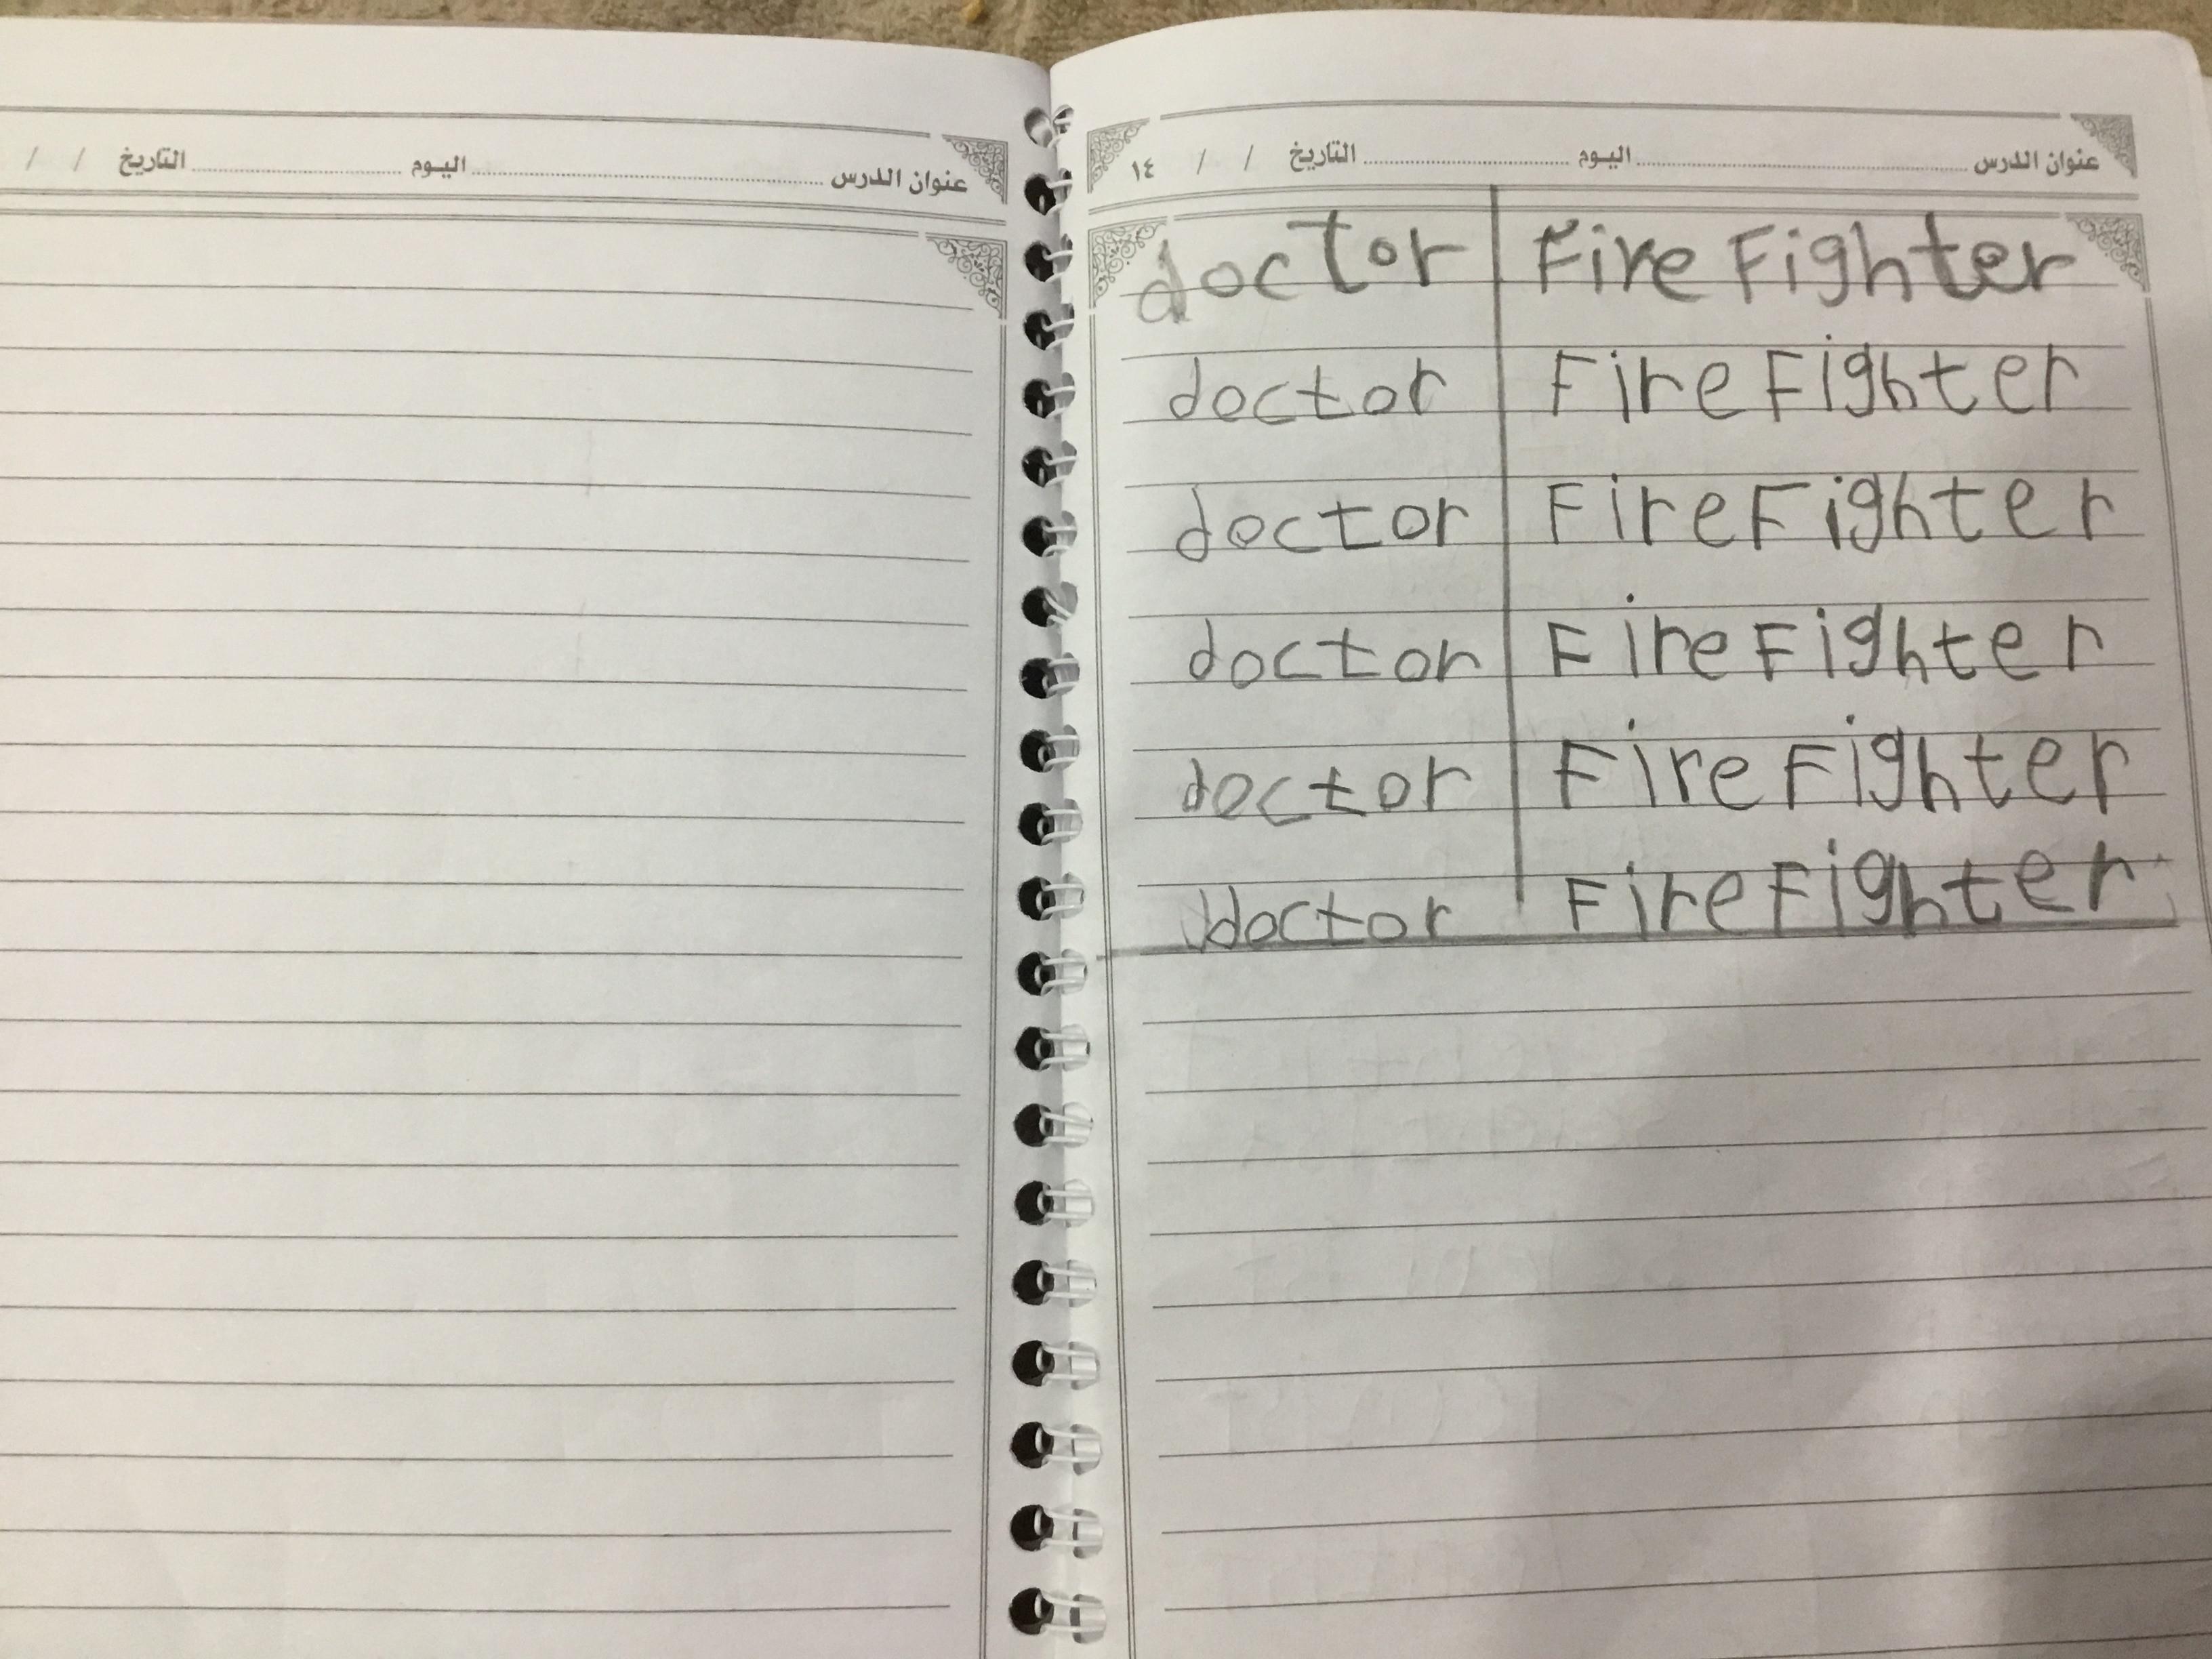 عنوان الدرس اليوم التاريخ / /
عنوان الدرس اليوم التاريخ / / ١٤
doctor FireFighter
doctor FireFighter
doctor FireFighter
doctor FireFighter
doctor FireFighter
doctor FireFighter